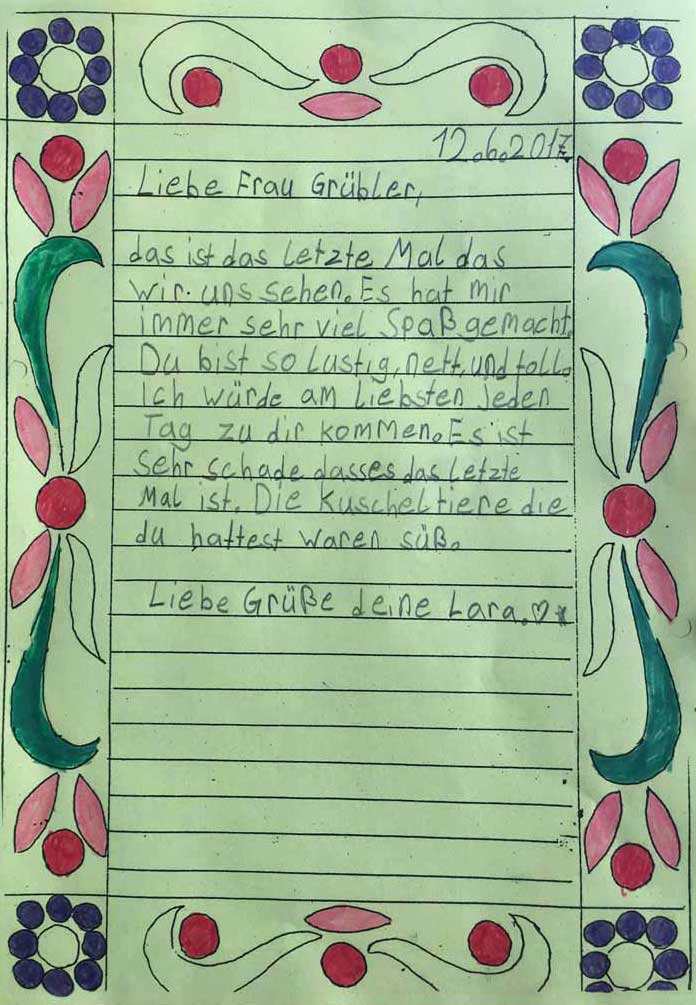 12.6.2017
Liebe Frau Grübler,
das ist das letzte Mal das
wir uns sehen. Es hat mir
immer sehr viel Spaß gemacht.
Du bist so lustig, nett, und toll.
Ich würde am liebsten jeden
Tag zu dir kommen. Es ist
sehr schade dasses das letzte
Mal ist. Die Kuscheltiere die
du hattest waren süß.
Liebe Grüße deine Lara.♡*